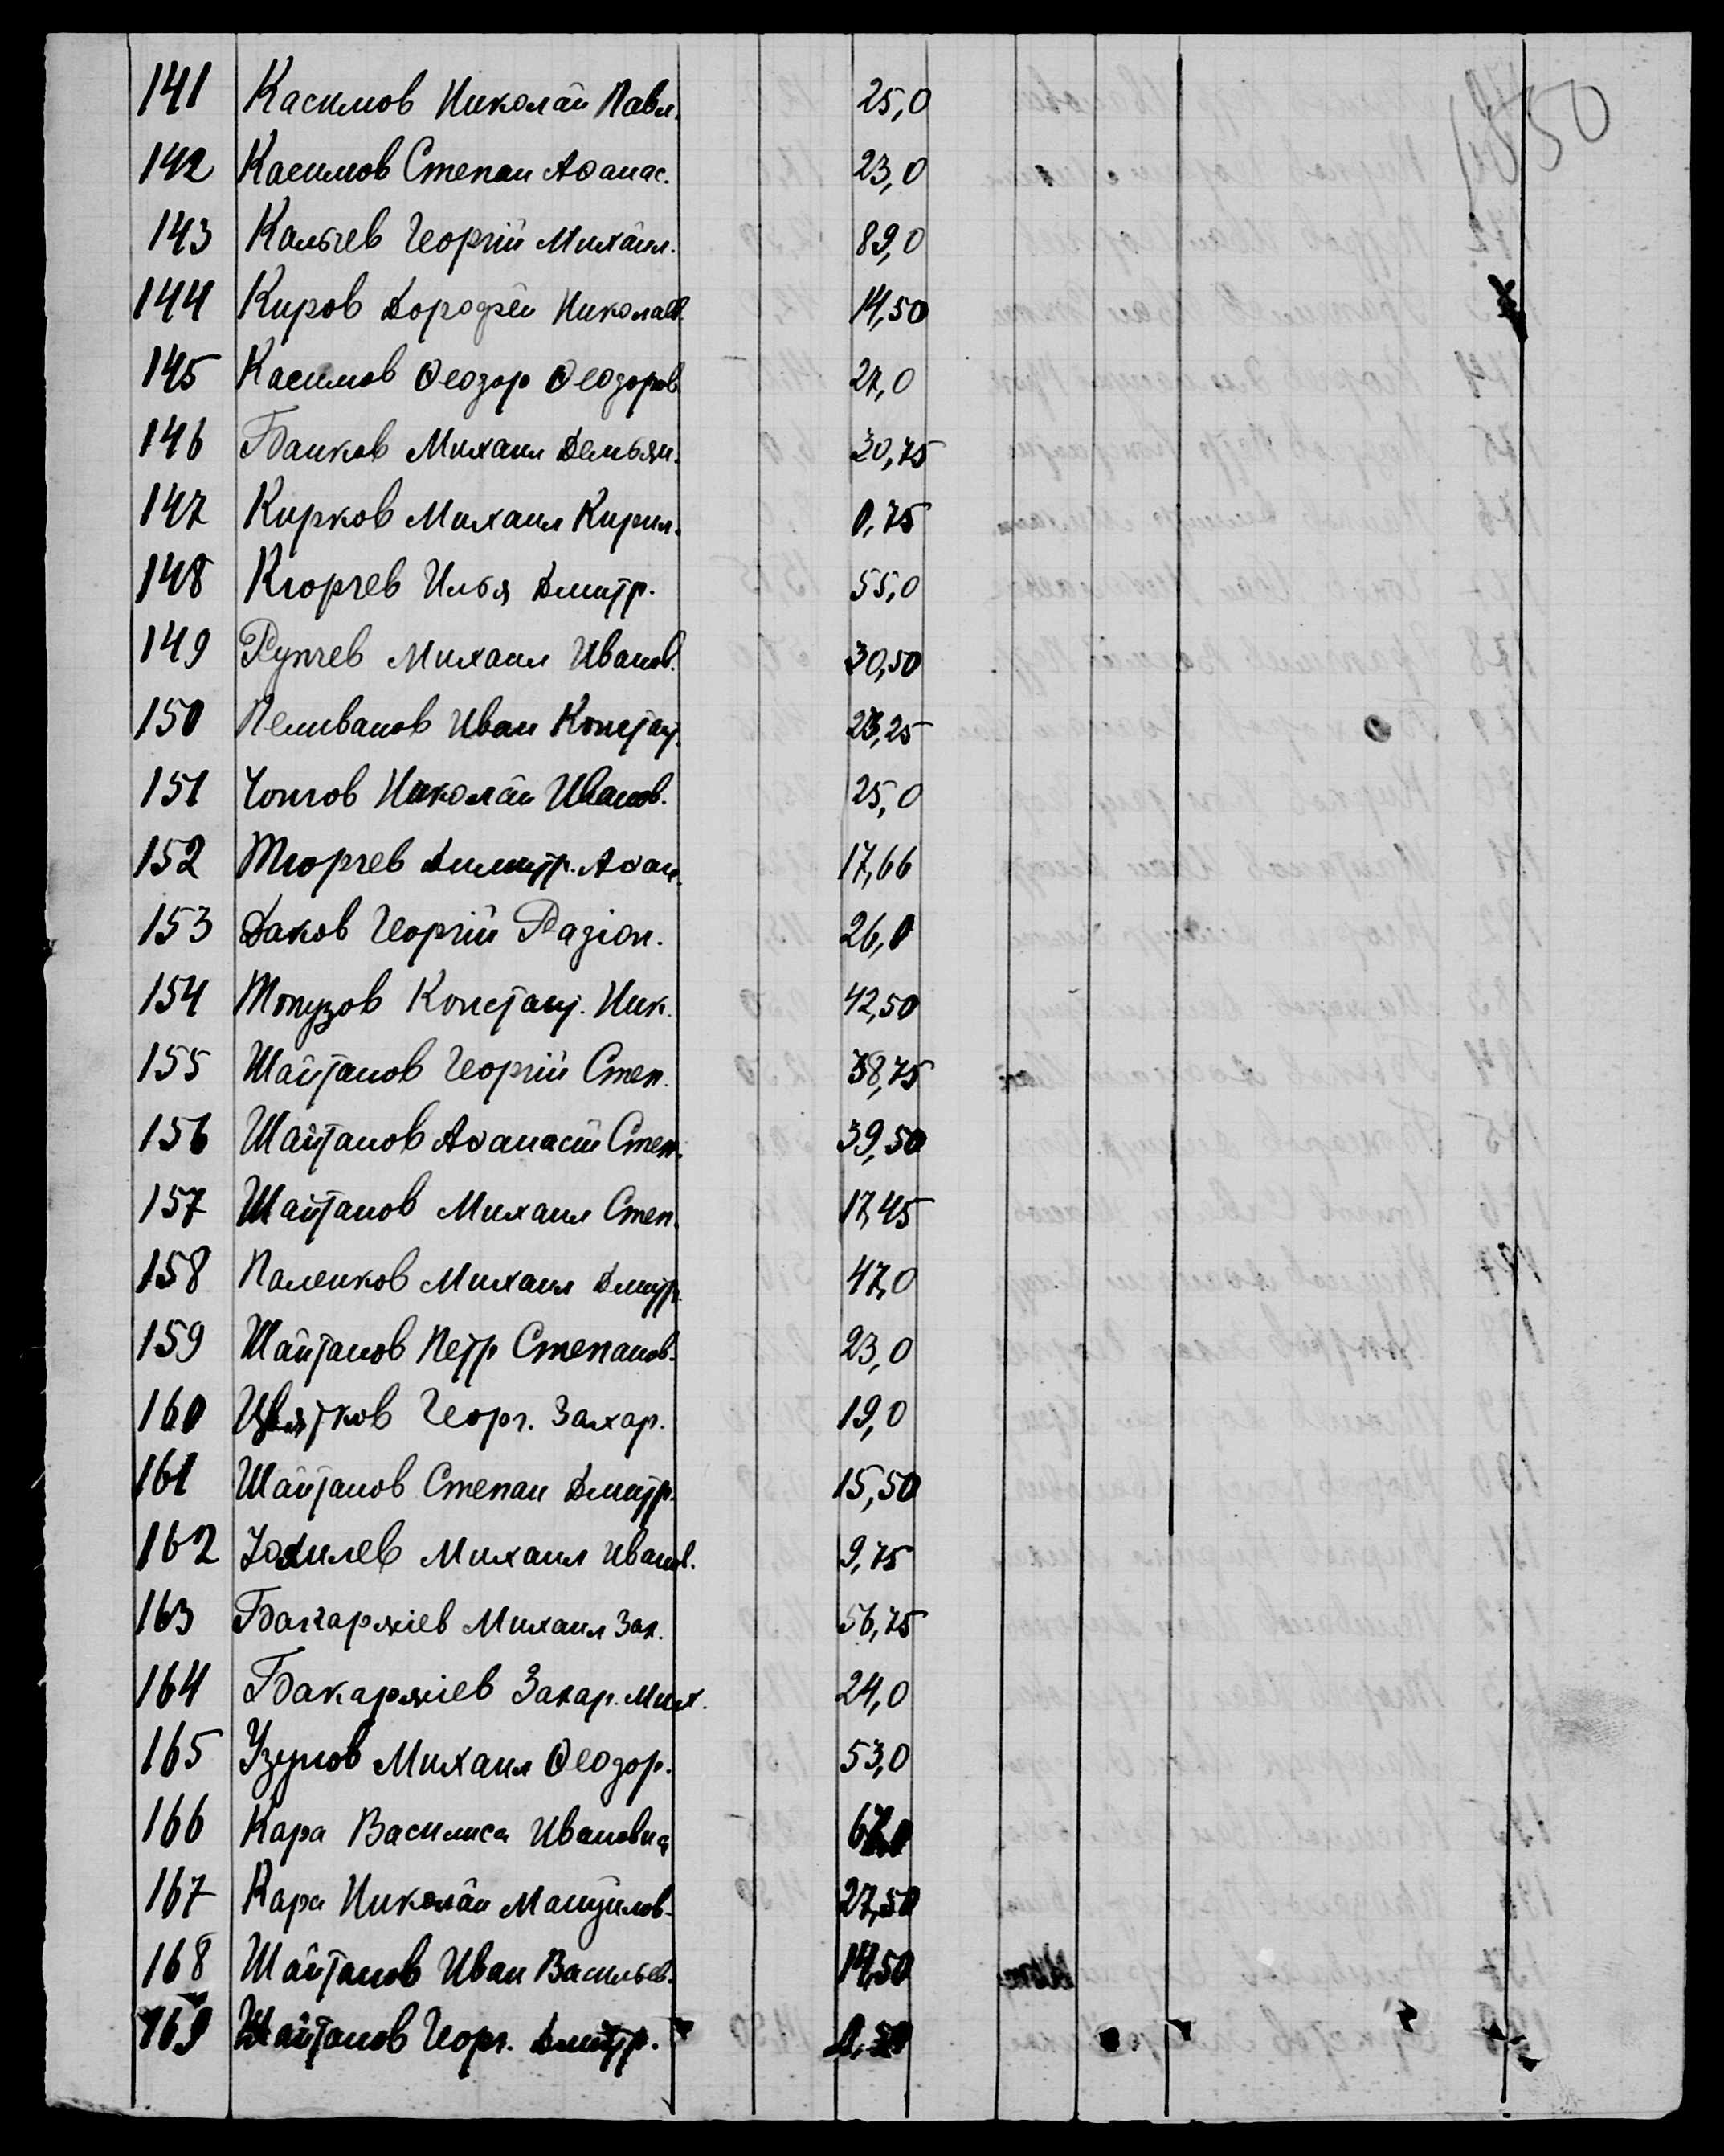 141 Касимов Николай Павл. 25,0
142 Касимов Степан Аѳанас. 23,0
143 Кальчев Георгій Михаил. 89,0
144 Киров Дорофей Николаев. 14,50
145 Касимов Ѳеодор Ѳеодоров. 27,0
146 Банков Михаил Демьян. 30,75
147 Кирков Михаил Кирил. 0,75
148 Кюрчев Илья Дмитр. 55,0
149 Рупчев Михаил Иванов. 30,50
150 Пеливанов Иван Констант. 23,25
151 Чонгов Николай Иванов. 25,0
152 Тюрчев Димитр. Аѳан. 17,66
153 Даков Георгій Радіон. 26,0
154 Топузов Констант. Ник. 42,50
155 Шайтанов Георгій Степ. 38,75
156 Шайтанов Аѳанасій Степ. 39,50
157 Шайтанов Михаил Степ. 17,45
158 Паленков Михаил Дмитр. 47,0
159 Шайтанов Петр Степанов. 23,0
160 Цвятков Георг. Захар. 19,0
161 Шайтанов Степан Дмитр. 15,50
162 Михаил Иванов. 9,75
163 Бакаржіев Михаил Зах. 56,75
164 Бакаржіев Захар. Мих. 24,0
165 Узунов Михаил Ѳеодор. 53,0
166 Кара Василиса Ивановна
167 Кара Николай Мануилов. 27,50
168 Шайтанов Иван Васильев. 14,50
169 Шайтанов Георг. Дмитр.